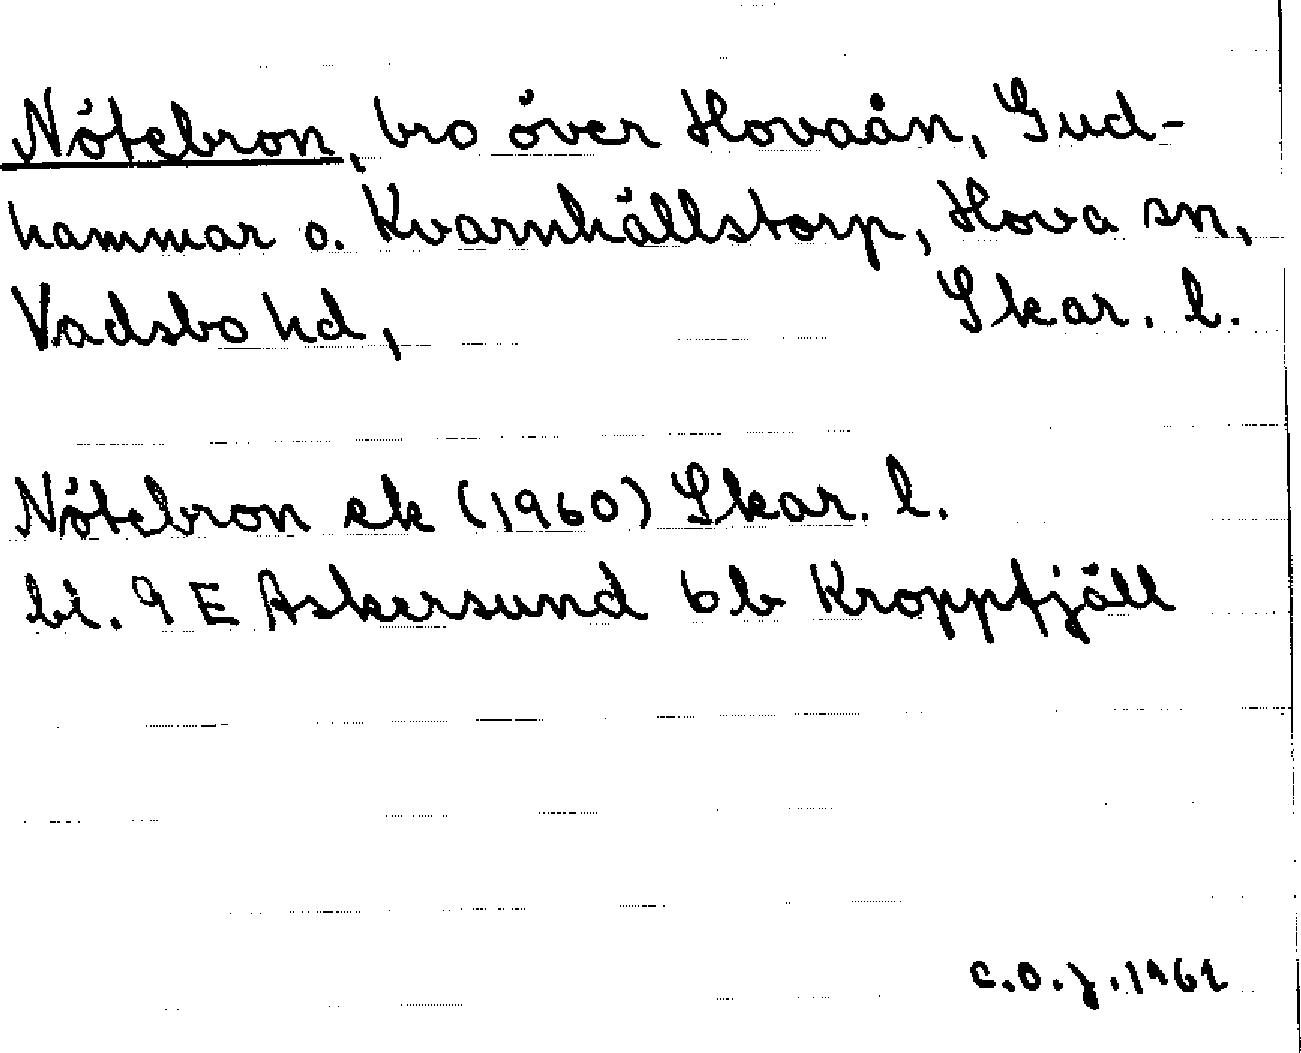 Nötebron, bro över Hovaån, Gud-
hammar o. Kvarnhällstorp, Hova sn,
Vadsbo hd, Skar. l.
Nötebron ek (1960) Skar. l.
bl. 9 E Askersund 6b Kroppfjäll
C.O.J. 1962